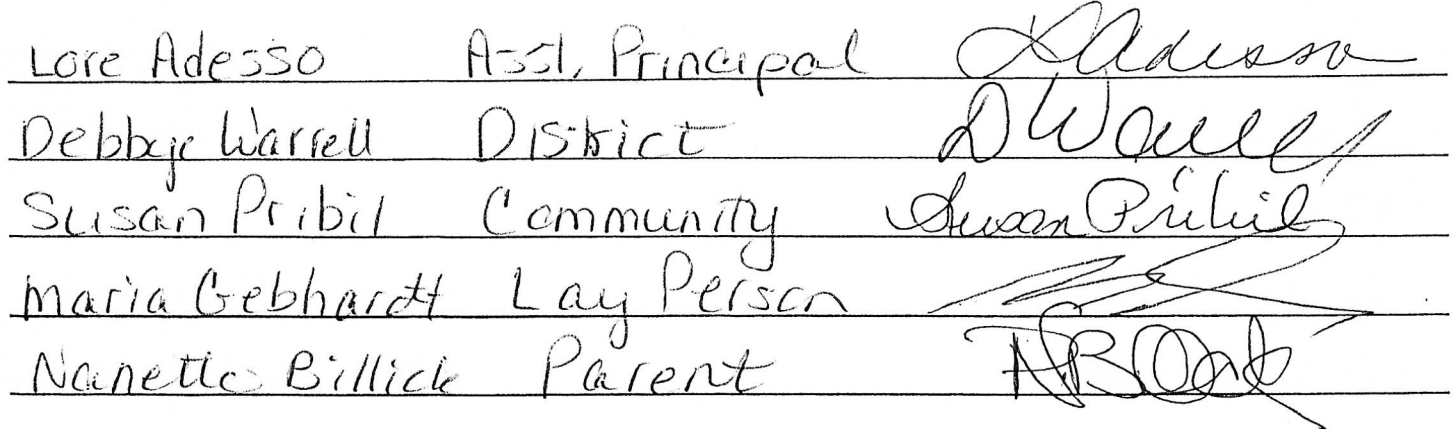 Lore Adesso Asst. Principal LAdesso
Debbye Warrell District DWarrell
Susan Pribil Community Susan Pribil
Maria Gebhardt Lay Person
Nanette Billick Parent NBillick